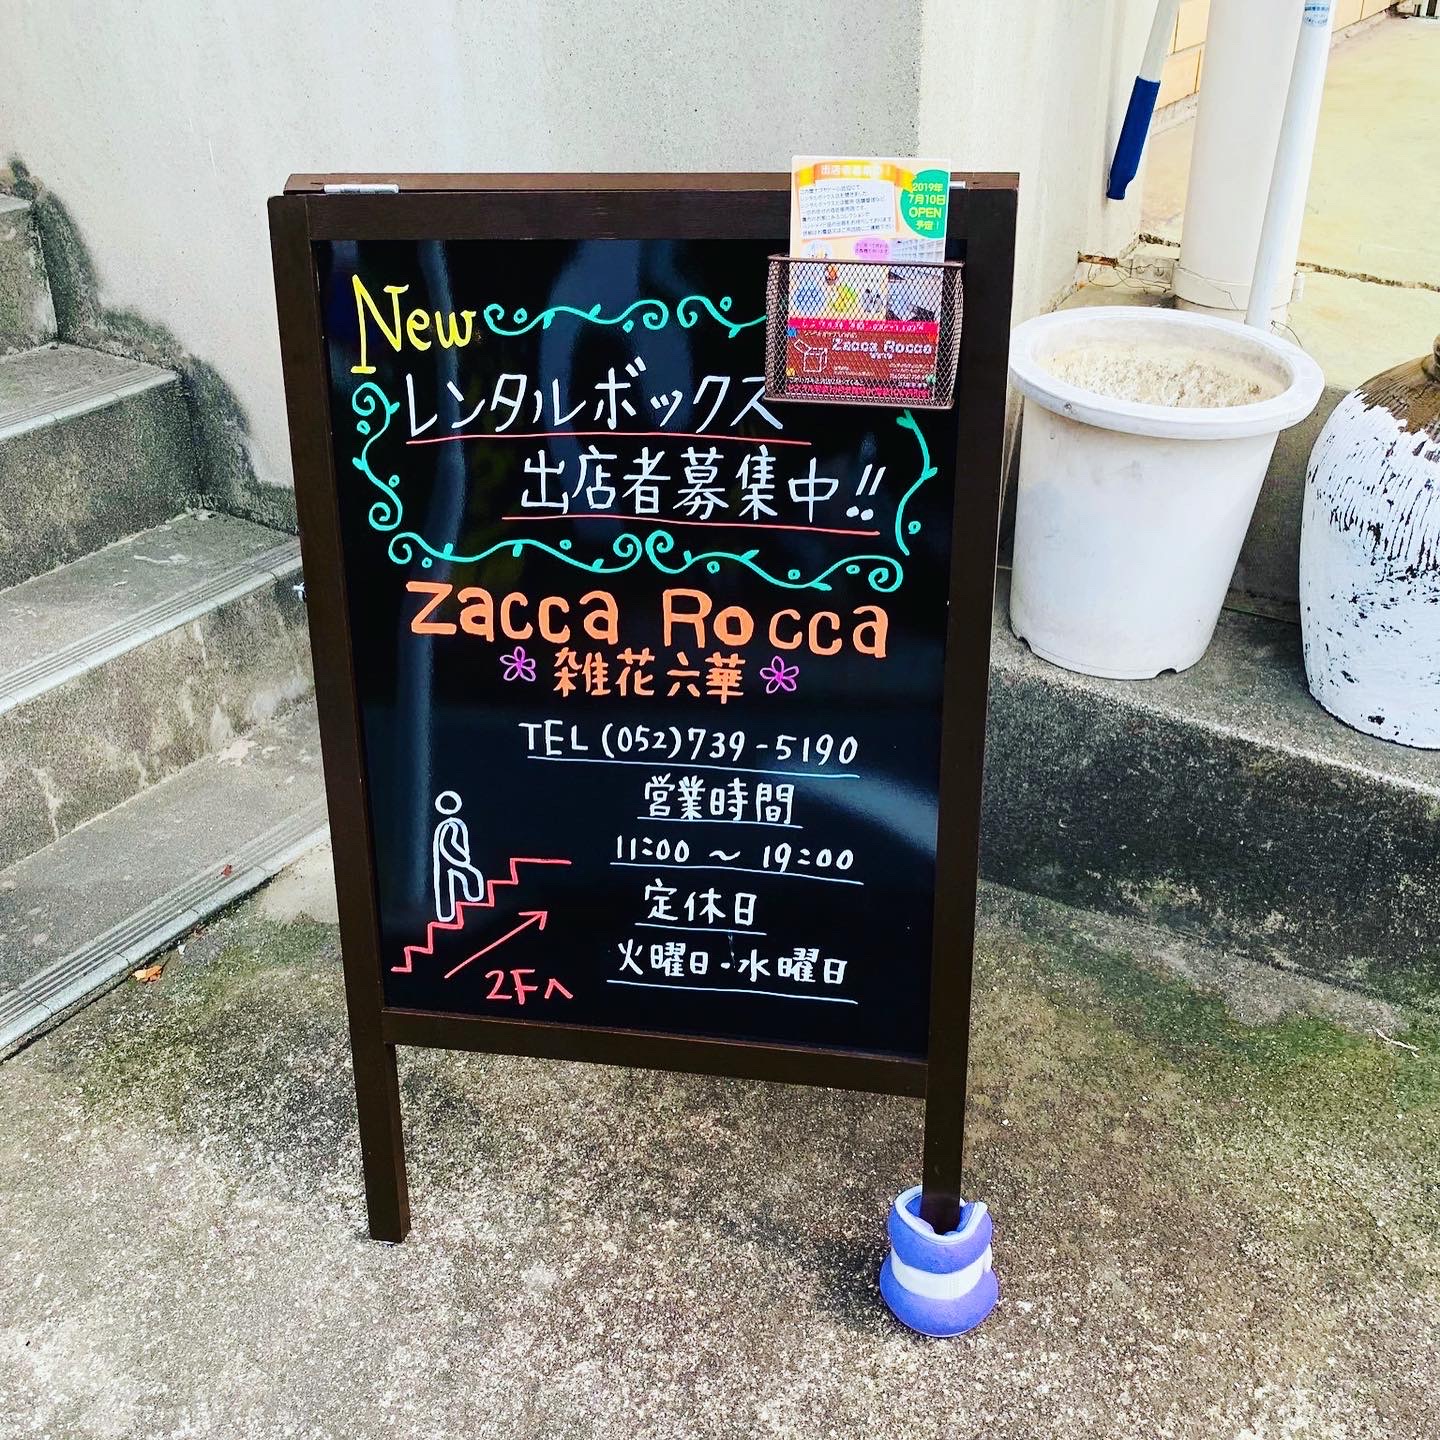 出店者募集中!
2019年
7月10日
OPEN
予定!
Zacca Rocca
New
レンタルボックス
出店者募集中!!
Zacca Rocca
雑花六華
TEL (052)739-5190
営業時間
11:00 ~ 19:00
定休日
火曜日・水曜日
2Fへ